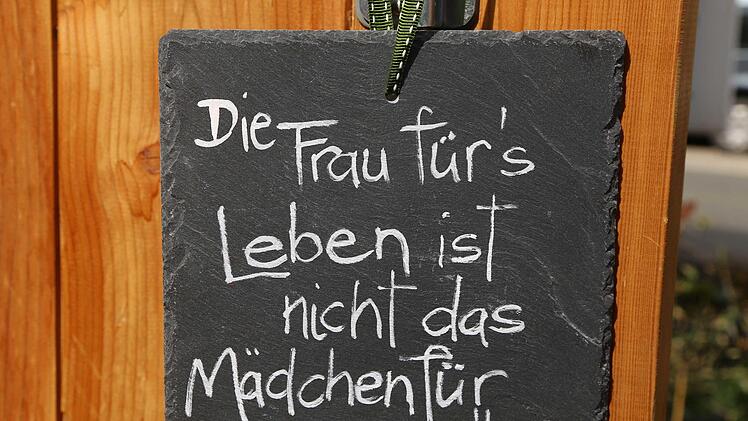 Die Frau für's
Leben ist
nicht das
Mädchen für